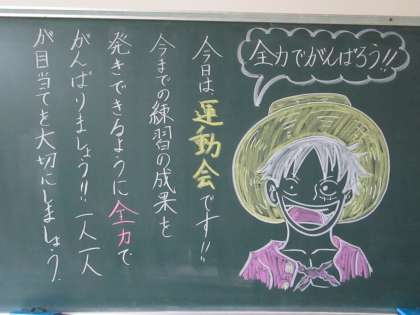 今日は、運動会です!!
今までの練習の成果を
発きできるように全力で
がんばりましょう!!一人一人
が目当てを大切にしましょう。
全力でがんばろう!!